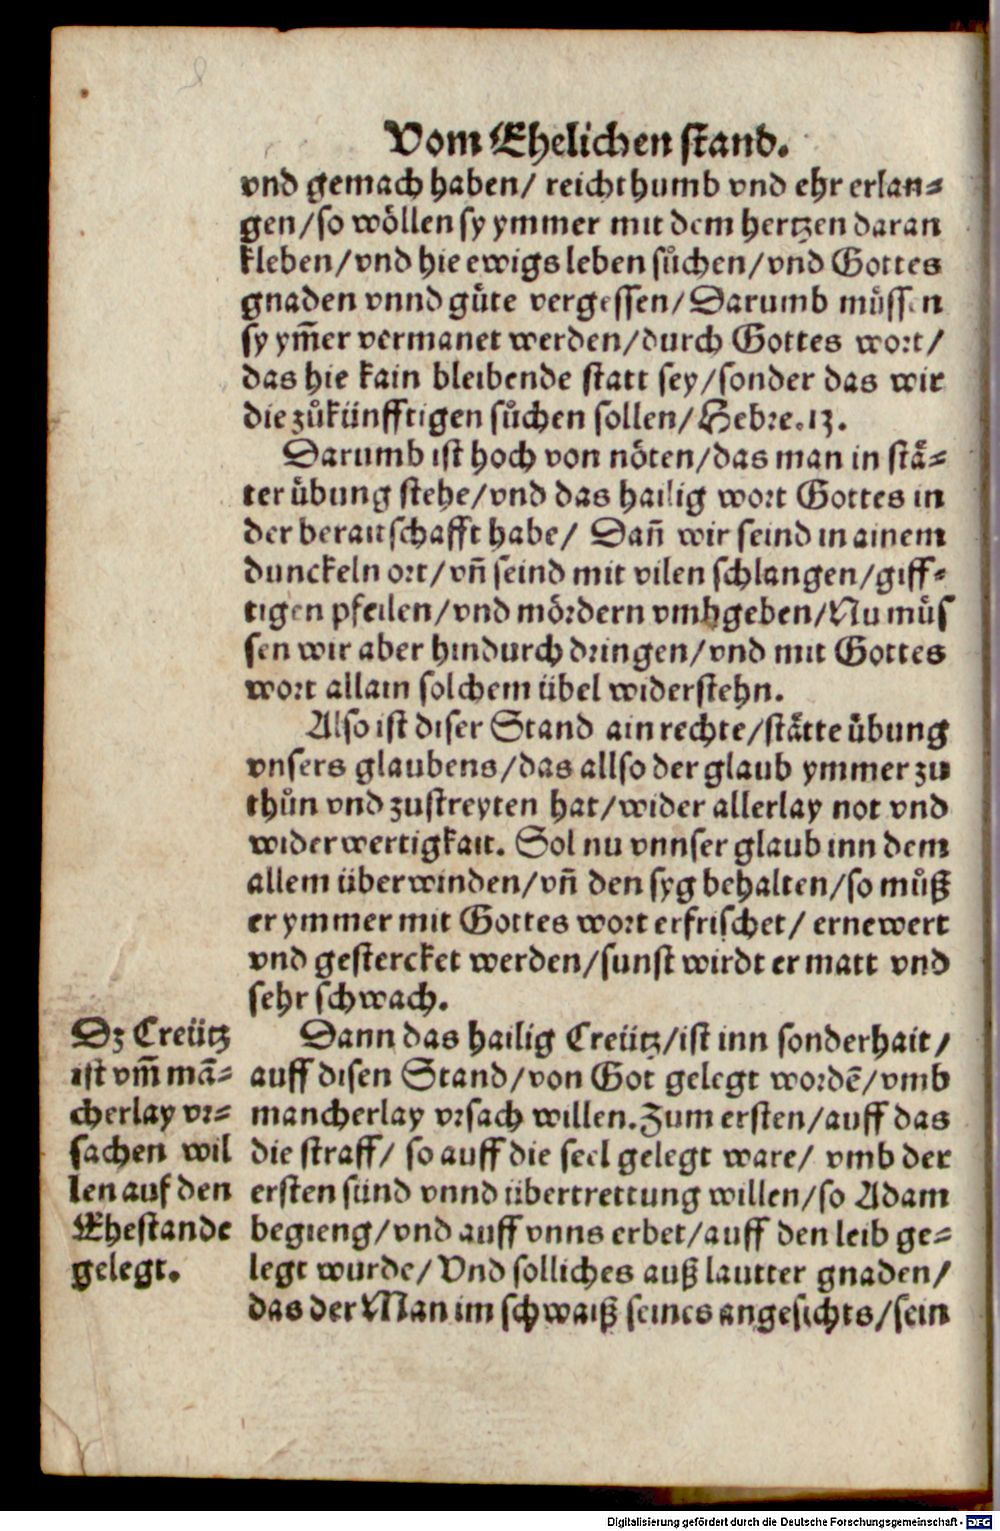 Vom Ehelichen stand.
vnd gemach haben/ reichthumb vnd ehr erlan⸗
gen/so wöllen sy ymmer mit dem hertzen daran
kleben/vnd hie ewigs leben suͦchen/vnd Gottes
gnaden vnnd guͤte vergessen/Darumb muͤssen
sy ym̃er vermanet werden/durch Gottes wort/
das hie kain bleibende statt sey/sonder das wir
die zuͦkünfftigen suͦchen sollen/Hebre.13.
Darumb ist hoch von nöten/das man in staͤ⸗
ter uͤbung stehe/vnd das hailig wort Gottes in
der beraitschafft habe/ Dañ wir seind in ainem
dunckeln ort/vñ seind mit vilen schlangen/giff⸗
tigen pfeilen/vnd mördern vmbgeben/Nu muͤs
sen wir aber hindurch dringen/vnd mit Gottes
wort allain solchem übel widerstehn.
Also ist diser Stand ain rechte/staͤtte uͤbung
vnsers glaubens/das allso der glaub ymmer zu
thuͦn vnd zustreyten hat/wider allerlay not vnd
widerwertigkait. Sol nu vnnser glaub inn dem
allem überwinden/vñ den syg behalten/so muͦß
er ymmer mit Gottes wort erfrischet/ ernewert
vnd gestercket werden/sunst wirdt er matt vnd
sehr schwach.
Dz Creütz
ist vm̃ mā⸗
cherlay vr⸗
sachen wil
len auf den
Ehestande
gelegt.
Dann das hailig Creütz/ist inn sonderhait/
auff disen Stand/von Got gelegt wordē/vmb
mancherlay vrsach willen.Zum ersten/auff das
die straff/ so auff die seel gelegt ware/ vmb der
ersten sünd vnnd übertrettung willen/so Adam
begieng/vnd auff vnns erbet/auff den leib ge⸗
legt wurde/ Vnd solliches auß lautter gnaden/
das der Man im schwaiß seines angesichts/sein
Digitalisierung gefördert durch die Deutsche Forschungsgemeinschaft - DFG